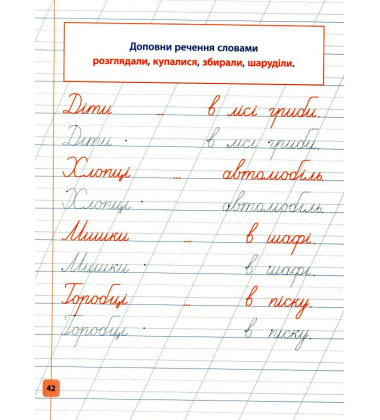 Доповни речення словами
розглядали, купалися, збирали, шаруділи.
Діти ... в лісі гриби.
Діти . в лісі гриби.
Хлопці ... автомобіль.
Хлопці . автомобіль.
Мишки ... в шафі.
Мишки . в шафі.
Горобці ... в піску.
Горобці . в піску.
42